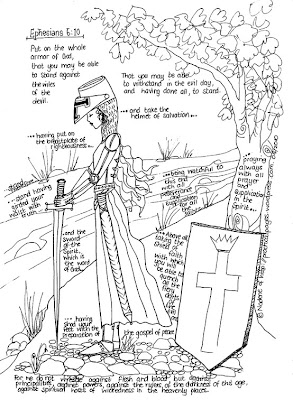 Ephesians 6:10
Put on the whole
armor of God,
that you may be able
to stand against
the wiles
of the
devil.
That you may be able
to withstand in the evil day,
and having done all, to stand.
...and take the
helmet of salvation...
...having put on
the breastplate of
righteousness...
...stand having
girded your
waist with
...being watchful to
this end
with all
perseverance
and
for all
the
praying
always
with all
prayer
and
supplication
in the
spirit...
...and the
Sword
of the
Spirit,
which is the
word of
God...
...Above all
taking the
shield of
faith
with which
you will
be able to
quench
all the
fiery
darts
of the
...having
shod your
feet with the
preparation of
the gospel of peace
For we do not wrestle against flesh and blood but against
principalities, against powers, against the rulers of the darkness of this age,
against spiritual hosts of wickedness in the heavenly places.